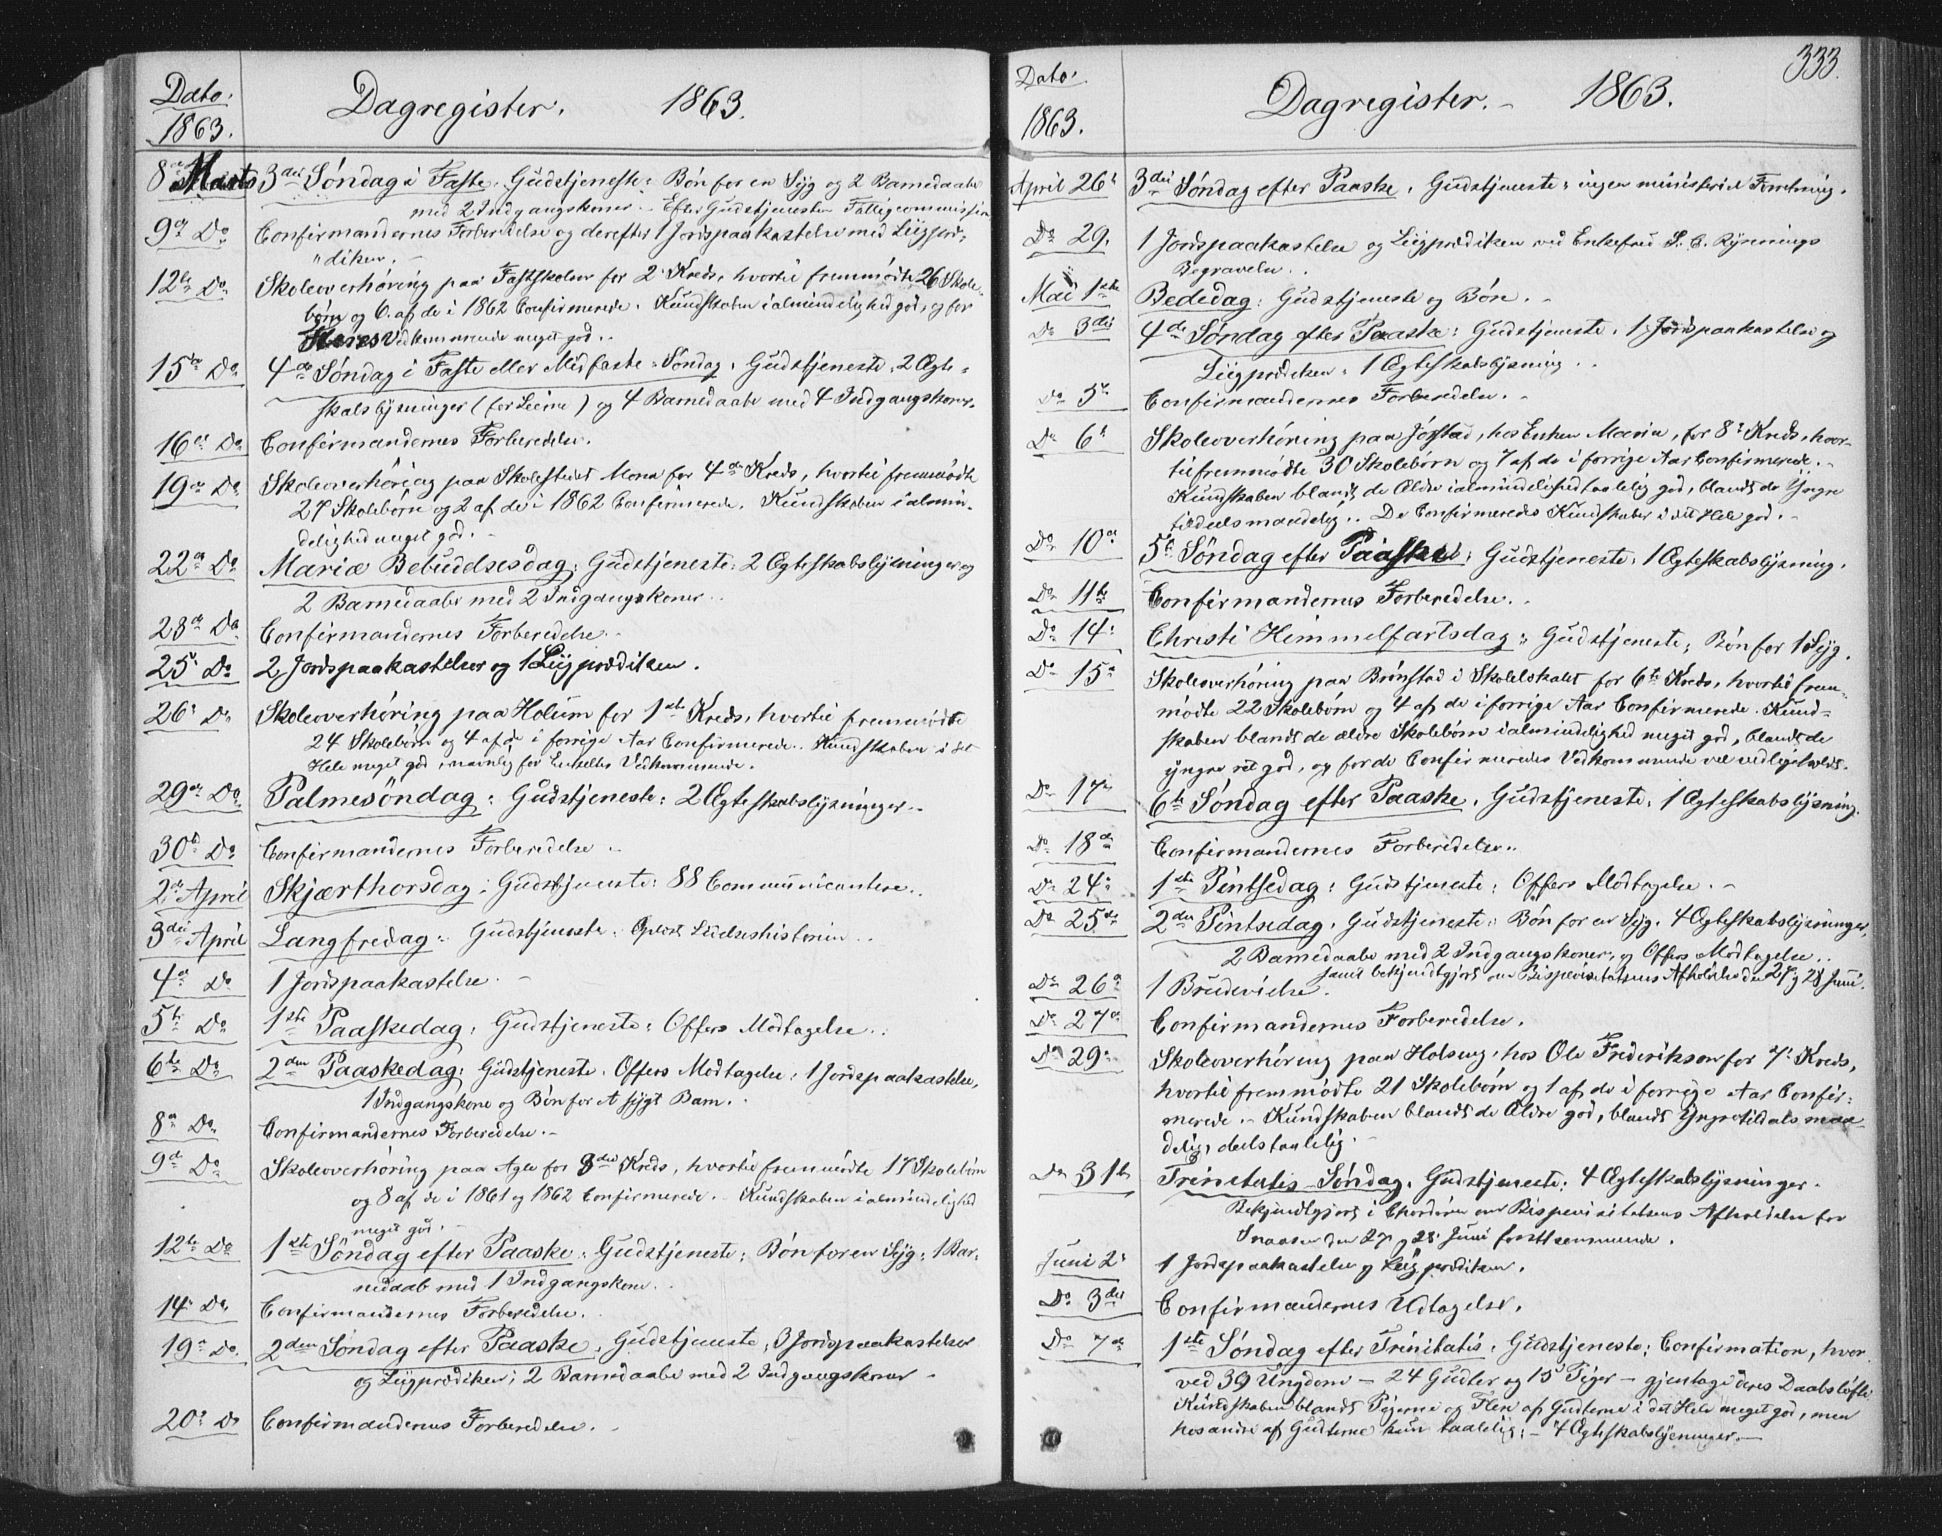 Dato.
1863.
Dagregister. 1863.
8de Marts 3die Søndag i Faste. Gudstjeneste: Bøn for en Syg og 2 Barnedaabe
med 2 Indgangskoner. Efter Gudstjenesten Fattigcommission
9de Do Confirmandernes Forberedelse og derefter 1 Jordspaakastelse med Liigpræ-
diken.
12te Do Skoleoverhøring paa Fastskolen for 2. Kreds, hvortil fremmødte 26 Skole-
børn og 6 af de i 1862 Confirmerede. Kundskaben i almindelighed god, og for
Fleres Vedkommende meget god.
15de Do 4de Søndag i Faste eller Midfaste-Søndag. Gudstjeneste, 2 Ægte-
skabslysninger (for Leierne) og 4 Barnedaabe med 4 Indgangskoner.
16de Do Confirmandernes Forberedelse.
19de Do Skoleoverhøring paa Skolestedet Mona for 4de Kreds, hvortil fremmødte
27 Skolebørn og 2 af de i 1862 Confirmerede. Kundskaben i almin-
delighed meget god.
22de Do Mariæ Bebudelsesdag: Gudstjeneste: 2 Ægteskabslysninger og
2 Barnedaabe med 2 Indgangskoner.
23de Do Confirmandernes Forberedelse.
25. Do 2 Jordspaakastelser og 1 Liigprædiken.
26. Do Skoleoverhøring paa Holum for 1ste Kreds, hvortil fremmødte
24 Skolebørn og 4 af de i forrige Aar Confirmerede. Kundskaben i det
Hele meget god, navnlig for Enkeltes Vedkommende.
29de Do Palmesöndag: Gudstjeneste: 2 Ægteskabslysninger.
30te Do Confirmandernes Forberedelse.
2de April Skjærthorsdag: Gudstjeneste: 88 Communicantere.
3die April Langfredag: Gudstjeneste: Oplæst Lidelseshistorien.
4de Do 1 Jordspaakastelse.
5te Do 1ste Paaskedag: Gudstjeneste: Offers Modtagelse.
6te Do 2den Paaskedag: Gudstjeneste. Offers Modtagelse, 1 Jordspaakastelse,
1 Indgangskone og Bøn for et sygt Barn.
8de Do Confirmandernes Forberedelse.
9de Do Skoleoverhøring paa Agle for 3die Kreds, hvortil fremmødte 17 Skolebørn
og 8 af de i 1861 og 1862 Confirmerede. Kundskaben i almindelighed
meget god.
12te Do 1ste Søndag efter Paaske: Gudstjeneste; Bøn for en Syg; 1 Bar-
nedaab med 1 Indgangskone.
14. Do Confirmandernes Forberedelse.
19. Do 2den Søndag efter Paaske, Gudstjeneste; 3 Jordspaakastelser
og Liigprædiken; 2 Barnedaabe med 2 Indgangskoner
20. Do Confirmandernes Forberedelse.
333.
Dato.
1863.
Dagregister. 1863.
April 26. 3die Søndag efter Paaske. Gudstjeneste: ingen ministeriel Forretning.
Do 29. 1 Jordspaakastelse og Liigprædiken ved Enkefru Rynnings
Begravelse.
Mai 1ste Bededag: Gudstjeneste og Bøn.
Do 3die 4de Søndag efter Paaske: Gudstjeneste. 1 Jordspaakastelse og
Liigprædiken. 1 Ægteskabslysning.
Do 5te Confirmandernes Forberedelse.
Do 6te Skoleoverhøring paa Jørstad, hos Enken Maria, for 8. Kreds, hvor-
til fremmødte 30 Skolebørn og 7 af de i forrige Aar Confirmerede.
Kundskaben blandt de Ældre i almindelighed taalelig god, blandt de Yngre
tildeels maadelig. De Confirmeredes Kundskaber i det Hele god.
Do 10de 5te Søndag efter Paaske: Gudstjeneste: 1 Ægteskabslysning.
Do 11te Confirmandernes Forberedelse.
Do 14. Christi Himmelfartsdag: Gudstjeneste; Bøn for 1 Syg.
Do 15. Skoleoverhøring paa Brønstad i Skolelokalet for 6te Kreds, hvortil frem-
mødte 22 Skolebørn og 4 af de i forrige Aar Confirmerede. Kund-
skaben blandt de ældre Skolebørn i almindelighed meget god, blandt de
yngre ret god, og for de Confirmeredes Vedkommende vel vedligeholdt.
Do 17. 6te Søndag efter Paaske. Gudstjeneste. 1 Ægteskabslysning.
Do 18de Confirmandernes Forberedelse.
Do 24. 1ste Pintsedag: Gudstjeneste: Offers Modtagelse.
Do 25de 2den Pintsedag. Gudstjeneste: Bøn for en Syg. 4 Ægteskabslysninger,
2 Barnedaabe med 2 Indgangskoner, og Offers Modtagelse.
samt bekjendtgjort om Bispevisitatsens Afholdelse den 27 og 28 Juni.
Do 26. 1 Brudevielse.
Do 27. Confirmandernes Forberedelse.
Do 29. Skoleoverhøring paa Holseng, hos Ole Frederiksen for 7. Kreds,
hvortil fremmødte 21 Skolebørn og 1 af de i forrige Aar Confir-
merede. Kundskaben blandt de Ældre god, blandt Yngre tildels maa-
delig, deels taalelig.
Do 31te Trinitatis Søndag. Gudstjeneste: 4 Ægteskabslysninger.
Bekjendtgjort i Chordøren om Bispevisitatsens Afholdelse for
Snaasen den 27 og 28. Juni førstkommende.
Juni 2. 1 Jordspaakastelse og Liigprædiken.
Do 3die Confirmandernes Udtagelse.
Do 7de 1ste Søndag efter Trinitatis. Gudstjeneste: Confirmation, hvor-
ved 39 Ungdom — 24 Gudter og 15 Piger — gjentage deres Daabsløfte
Kundskaben blandt Pigerne og Flere af Gudterne i det Hele meget god, men
hos andre af Gudterne kun taalelig; — 4 Ægteskabslysninger.